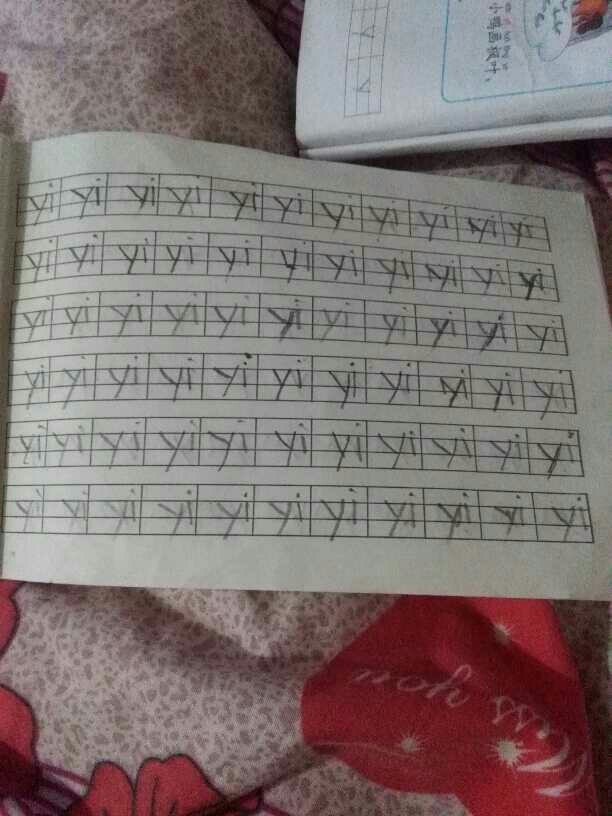 小鸭画枫叶,
yi yi yi yi yi yi yi yi yi yi yi
yi yi yi yi yi yi yi yi yi yi yi
yi yi yi yi yi yi yi yi yi yi yi
yi yi yi yi yi yi yi yi yi yi yi
yi yi yi yi yi yi yi yi yi yi yi
yi yi yi yi yi yi yi yi yi yi yi
Miss you